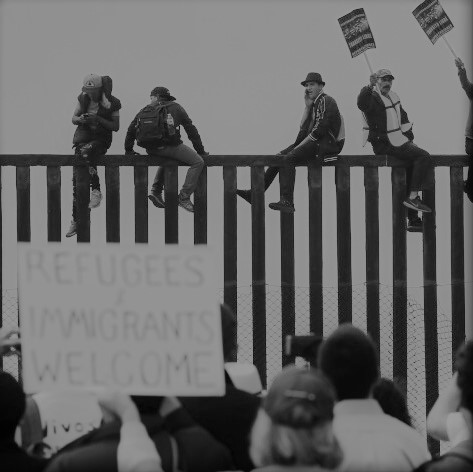 REFUGEES
&
IMMIGRANTS
WELCOME